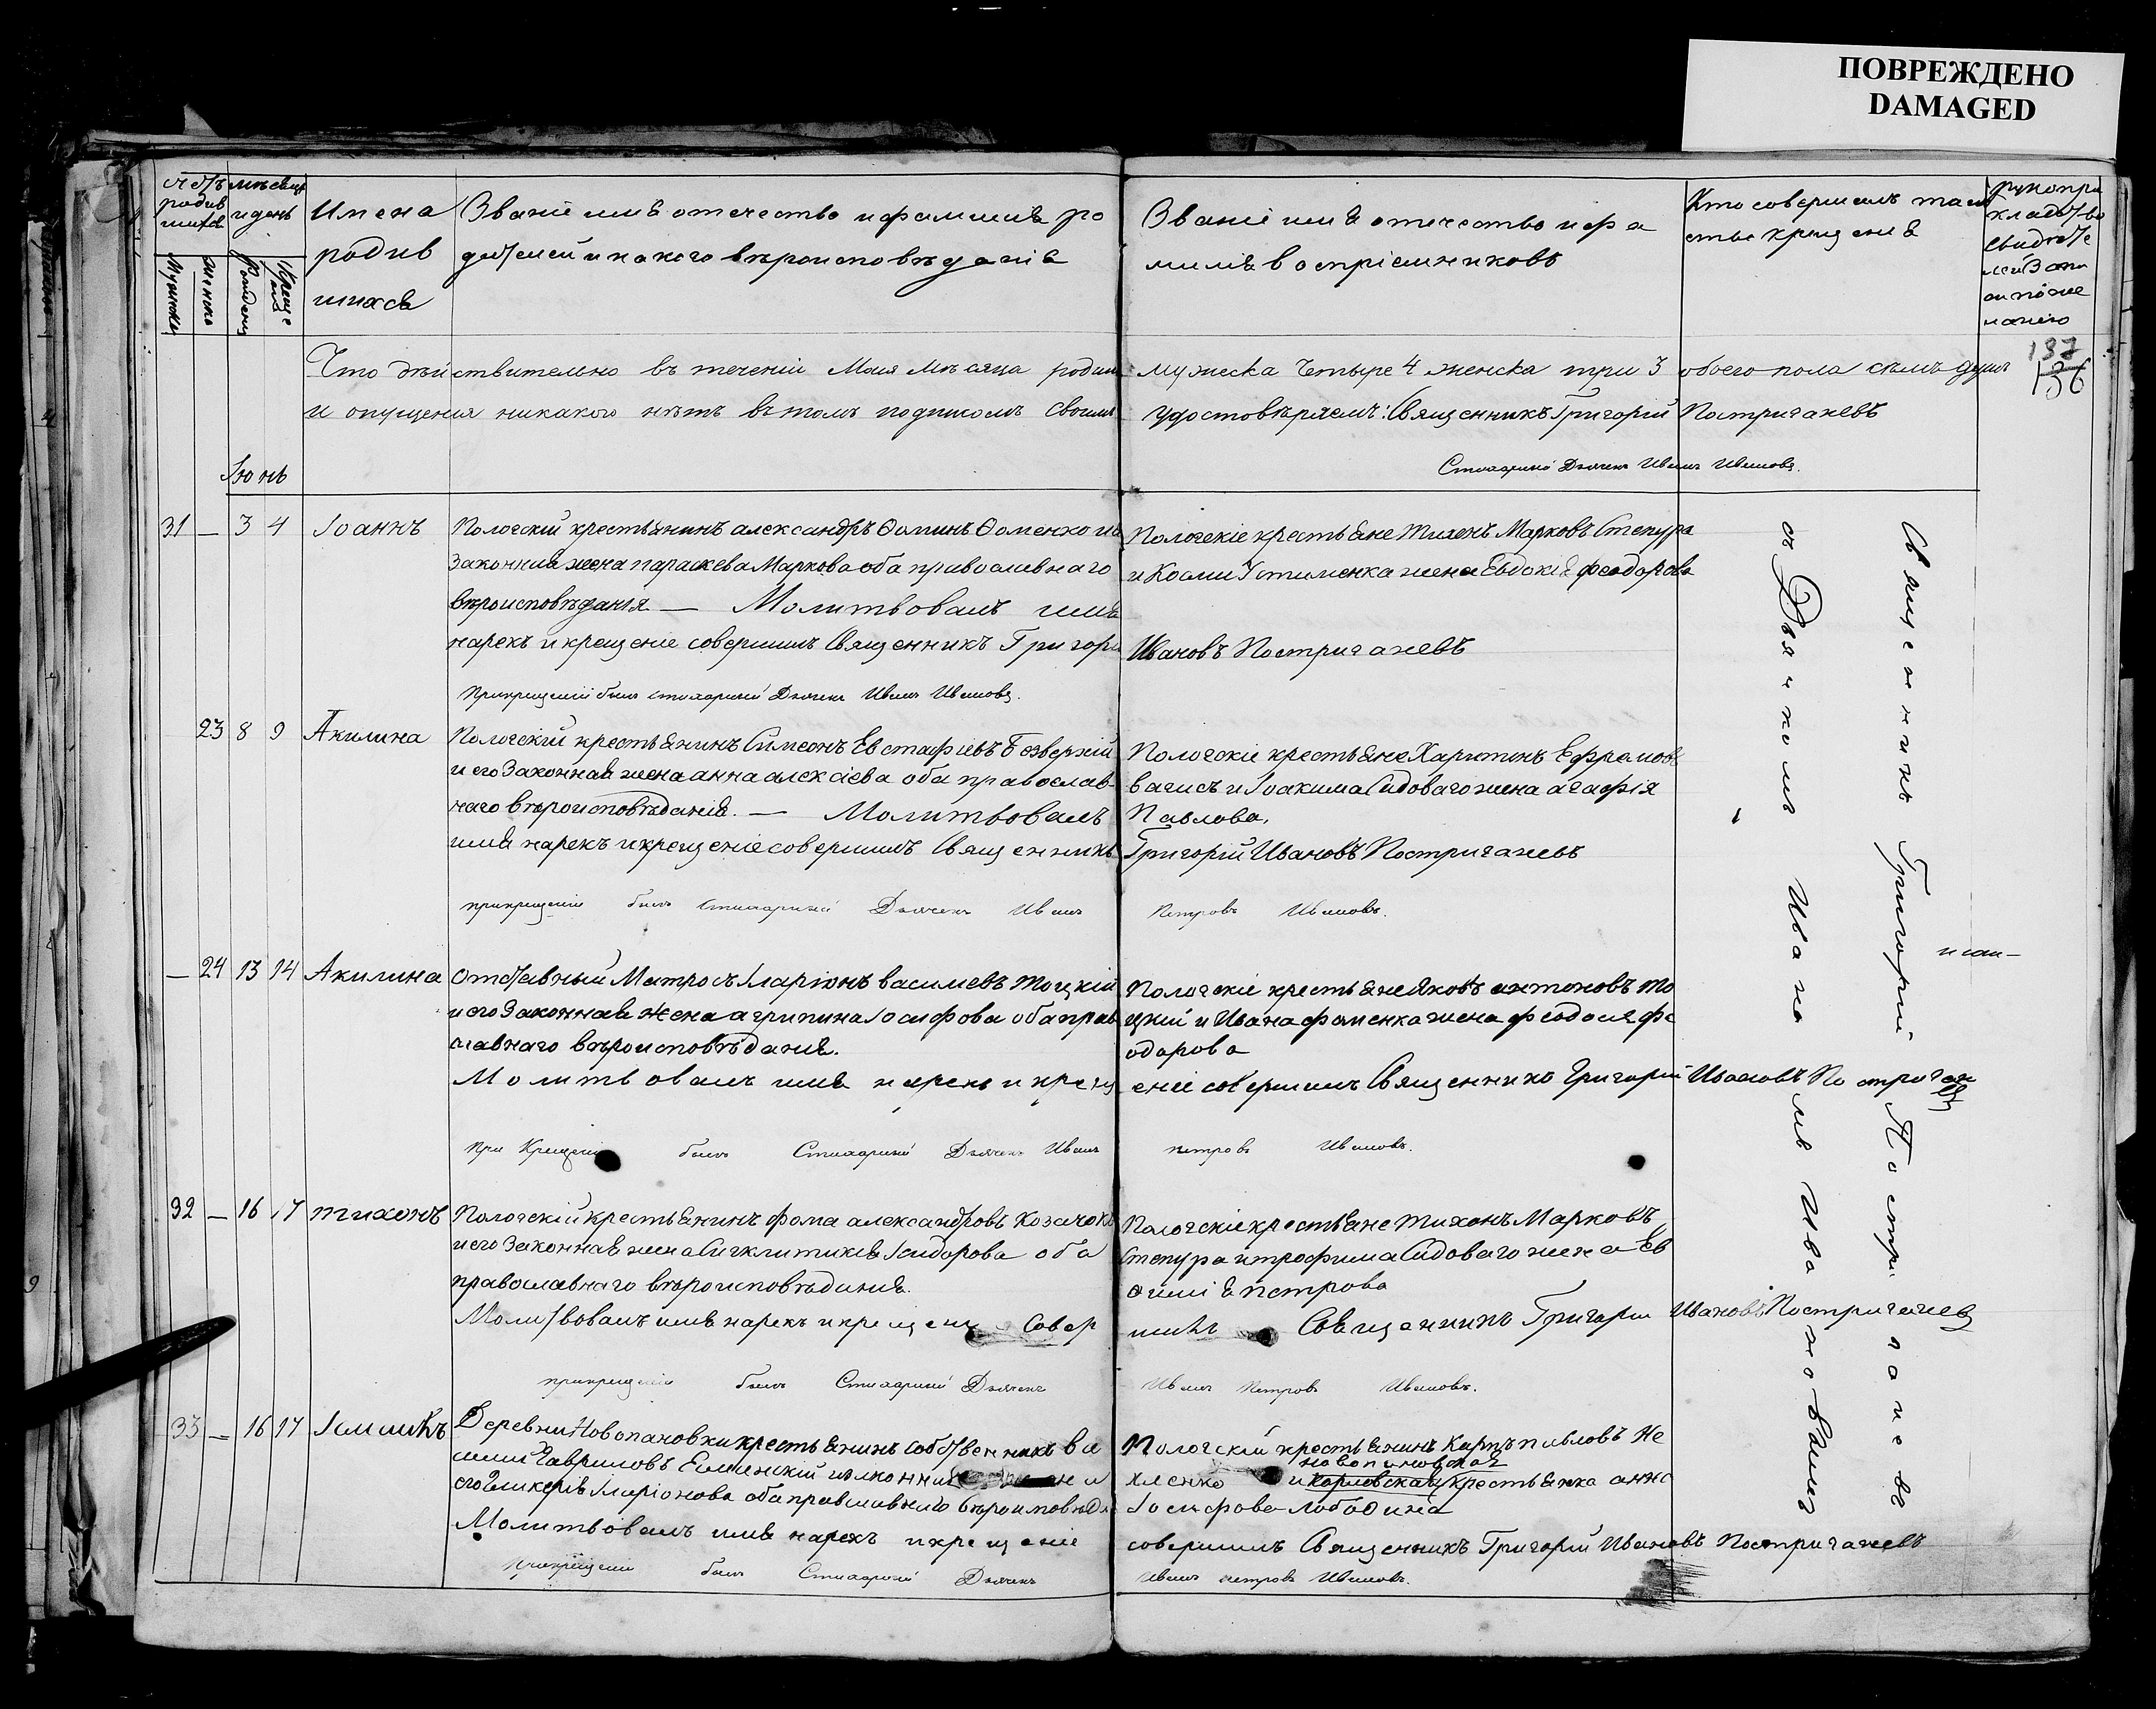 ПОВРЕЖДЕНО
DAMAGED
Имена родив шихся
Званіе имя отечество и фамилія ро
дителей и какого вѣроисповѣданія
Званіе имя отечество и фа
милія воспріемниковъ
Кто совершилъ таин
ство крещенія
рукопри
кладство
свидѣте
лей запи
си по же
ланію
137
136
Что дѣйствительно въ теченіи Мая мѣсяца родилось мужеска четыре 4 женска три 3 обоего пола семь душъ
и опущенія никакого нѣтъ въ томъ подписомъ своимъ удостовѣряемъ: Священникъ Григорій Постригачевъ
Стихарный Дьячекъ Иванъ Ивановъ.
Іюнь
31 — 3 4 Іоаннъ
Пологскій крестьянинъ александръ Ѳоминъ Ѳоменко и его
законная жена параскева Маркова оба православнаго
вѣроисповѣданія — Молитвовалъ имя
нарекъ и крещеніе совершилъ Священникъ Григорій Ивановъ Постригачевъ
При крещеніи былъ стихарный Дьячекъ Иванъ Ивановъ.
Пологскіе крестьяне Тихонъ Марковъ Степура
и Космы Устименка жена Евдокія феодорова
23 8 9 Акилина
Пологскій крестьянинъ Симеонъ Евстафіевъ Безверхій
и его Законная жена анна алексіева оба православ-
наго вѣроисповѣданія. — Молитвовалъ
имя нарекъ и крещеніе совершилъ Священникъ Григорій Ивановъ Постригачевъ
при крещеніи былъ Стихарный Дьячекъ Иванъ Петровъ Ивановъ.
Пологскіе крестьяне Харитонъ Ефремовъ
и Іоакима Садоваго жена агафія
Павлова.
— 24 13 14 Акилина
Отставный Матросъ Іларіонъ василіевъ Тоцкій
и его Законная жена агрипина Іосифова оба право
славнаго вѣроисповѣданія.
Молитвовалъ имя нарекъ и крещеніе совершилъ Священникъ Григорій Ивановъ Постригачевъ
При Крещеніи былъ Стихарный Дьячекъ Иванъ петровъ Ивановъ.
Пологскіе крестьяне Яковъ антоновъ То
цкій и Ивана фоменка жена феодосія фе
одорова
32 — 16 17 Тихонъ
Пологскій крестьянинъ фома александровъ Козачокъ
и его Законная жена Сигклитикія Ісидорова оба
православнаго вѣроисповѣданія.
Молитвовалъ имя нарекъ и крещеніе Совершилъ Священникъ Григорій Ивановъ Постригачевъ
при крещеніи былъ Стихарный Дьячекъ Иванъ Петровъ Ивановъ.
Пологскіе крестьяне Тихонъ Марковъ
Степура и трофима Садоваго жена Ев
фимія петрова
33 — 16 17
Деревни Новопановки крестьянинъ собственникъ ва
силій Гавриловъ
его Гликерія Іларіонова оба православнаго вѣроисповѣданія
Молитвовалъ имя нарекъ и крещеніе совершилъ Священникъ Григорій Ивановъ Постригачевъ
при крещеніи былъ Стихарный Дьячекъ Иванъ петровъ Ивановъ.
Пологскій крестьянинъ Карпъ павловъ Не
новопановская
и крестьянка анна
Іосифова Лободина
Священникъ Григорій Постригачевъ
съ Дьячкомъ Иваномъ Ивановымъ